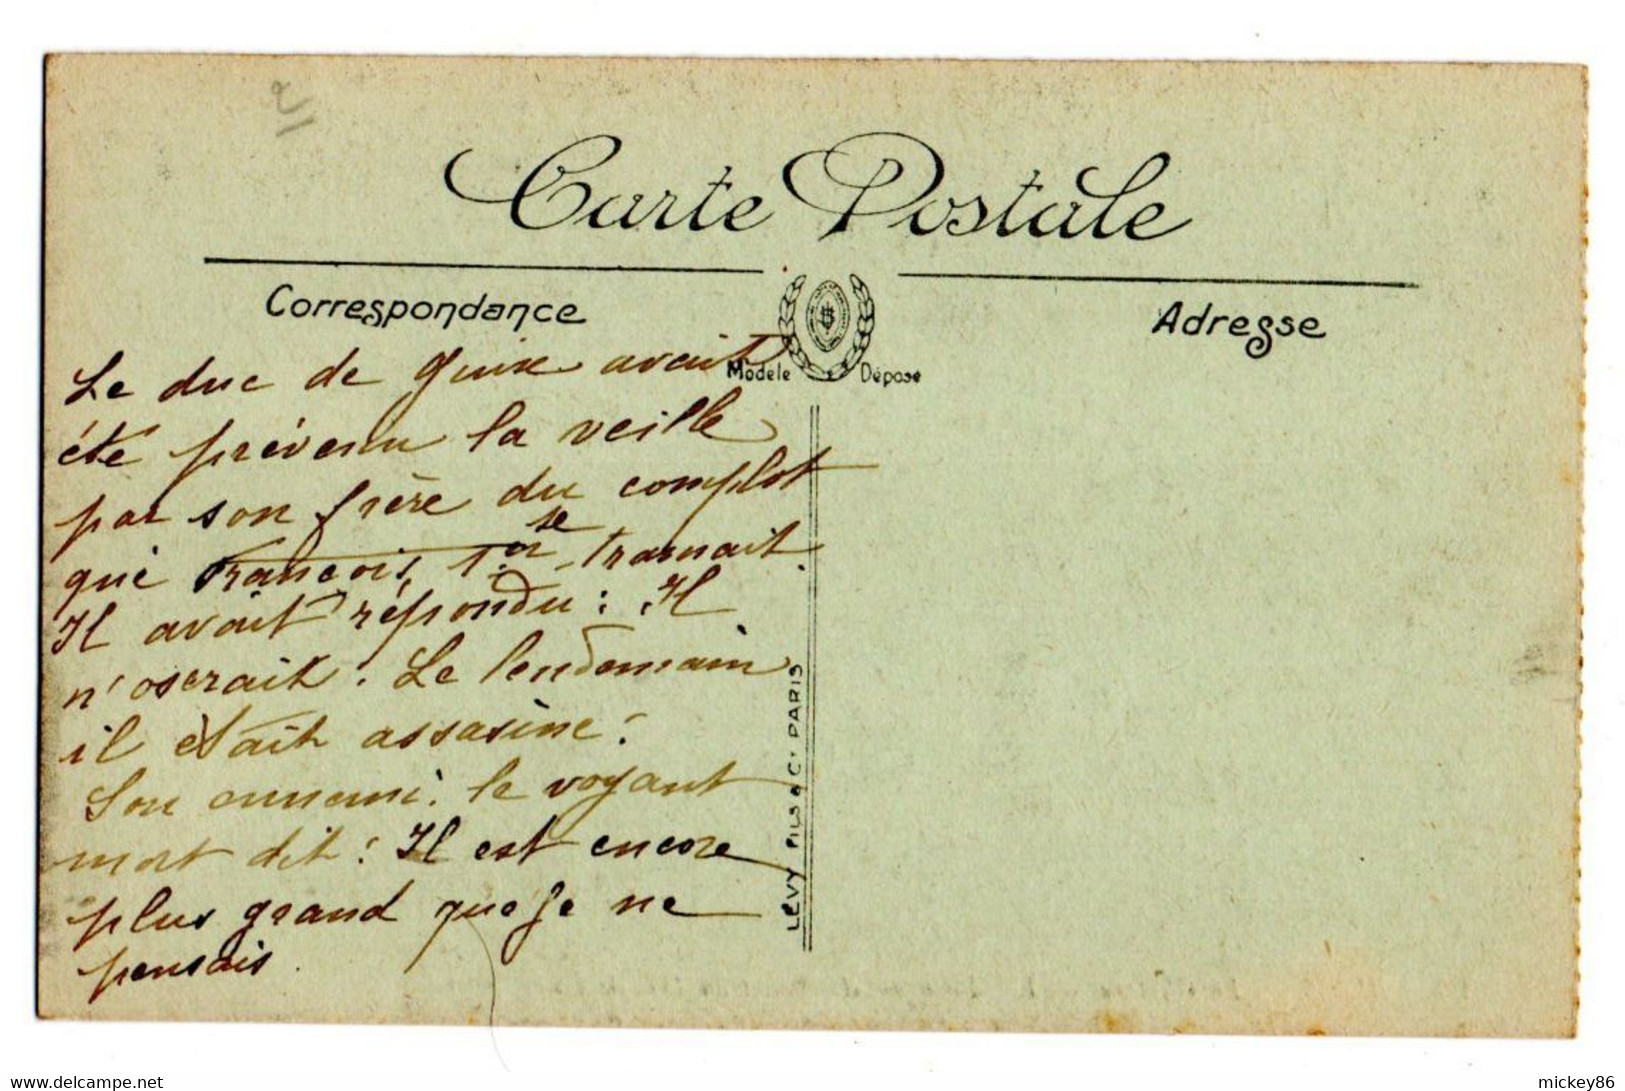 Carte Postale
Correspondance
Adresse
Modèle Déposé
Le duc de Guise avait
été prévenu la veille
par son frère du complot
que François 1er se tramait.
Il avait répondu : Il
n'oserait. Le lendemain
il était assasiné.
Son ennemi le voyant
mort dit : Il est encore
plus grand que je ne
pensais.
LÉVY FILS & Cie PARIS
delcampe.net
mickey86